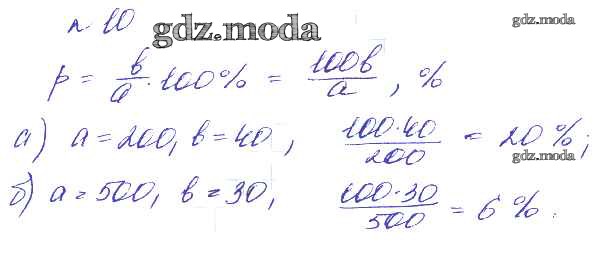 n 10
gdz.moda
gdz.moda
p = b/a · 100% = 100b/a , %
а) a = 200, b = 40 , 100·40/200 = 20 %;
gdz.moda
б) a = 500, b = 30, 100·30/500 = 6 %.